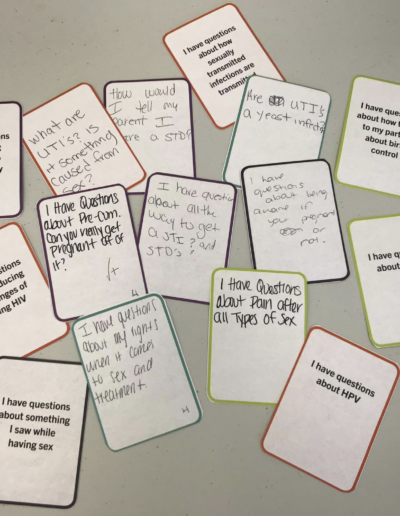 I have questions
about how
sexually
transmitted
infections are
transmitted
How would
I tell my
Parent I
ere a STD?
What are
UTI's? Is
it something
caused from
sex?
Are UTI's
a yeast infection
I have ques
about how t
to my part
about bir
control
I Have Questions
about Pre-cum.
Can you really get
Pregnant off of
it?
I have questions
about all the
way to get
a STI? and
STD's?
I have
questions
about being
aware if
you pregnant
or not.
stions
ducing
nges of
ng HIV
I have q
about
I have questions
about my rights
when it comes
to sex and
treatment
4
I Have Questions
about Pain after
all Types of Sex
I have questions
about something
I saw while
having sex
I have questions
about HPV